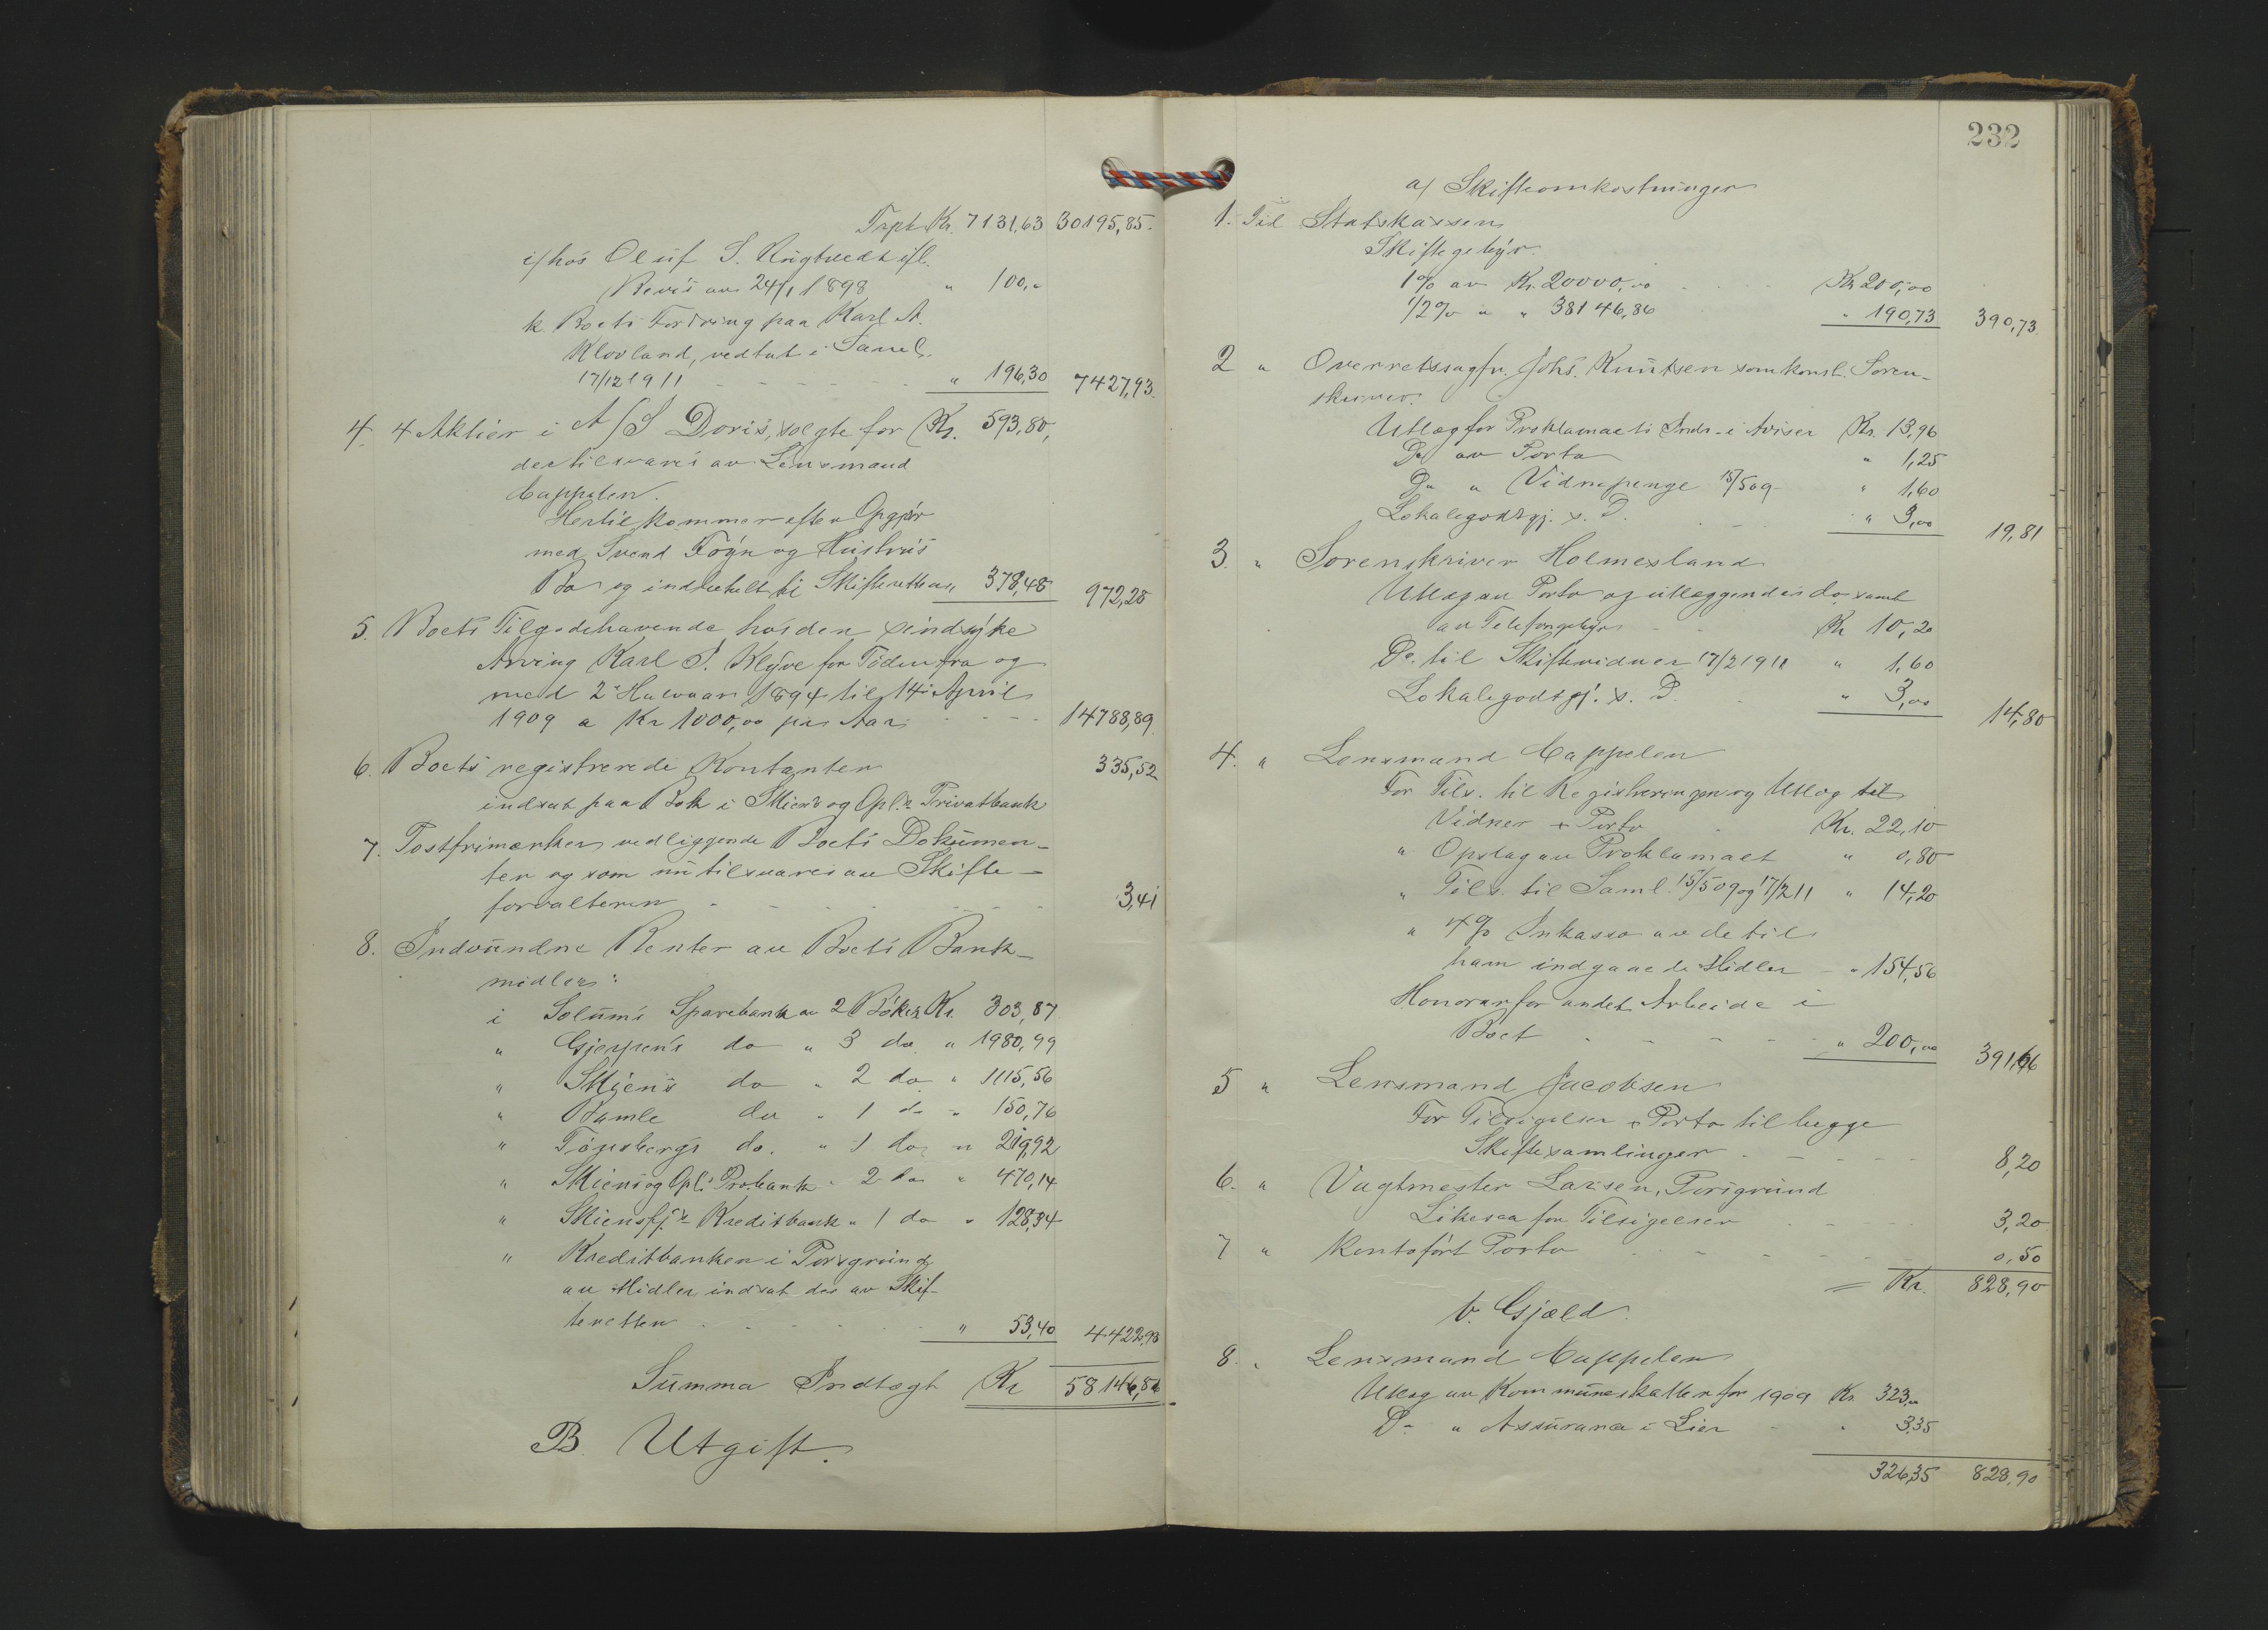 Trpt. Kr. 7131,63 30195,85.
i/ hos Oluf S. Rugtvedt ifl.
Bevis av 24/1 1898 " 100,-
k. Boets Fordring paa Karl A.
Klovland, vedtat i Saml.
17/12 1911 - - - - - " 196,30 7427,93.
4. 4 Aktier i A/S Doris, solgte for Kr. 593,80,
der tilsvares av Lensmand
Cappelen.
Hertil kommer efter Opgjør
med Svend Foÿn og Hustrus
Bo og indbetalt til Skifteretten " 378,48 972,28
5. Boets Tilgodehavende hos den sindsyke
Arving Karl S. Klyve for Tiden fra og
med 2det Halvaar 1894 til 14 April
1909 a Kr 1000,00 pr. Aar - - - 14788,89
6. Boets registrerede Kontanter 335,52
indsat paa Bok i Skiens og Opl.s Privatbank
7. Postfrimærker vedliggende Boets Dokumen-
ter og som nu tilsvares av Skifte-
forvalteren - - - - - - 3,41
8. Indvundne Renter av Boets Bank-
midler:
i Solums Sparebank av 2 Bøker Kr. 303,87
" Gjerpens do " 3 do " 1980,99
" Skiens do " 2 do " 1115,56
" Bamle do " 1 do " 150,76
" Tønsbergs do. " 1 do " 219,92
" Skiens og Opl.s Pr.bank " 2 do " 470,14
" Skiensfj.s Kreditbank " 1 do " 128,34
" Kreditbanken i Porsgrund
av Midler indsat der av Skif-
teretten - - - - - " 53,40 4422,98
Summa Indtægt Kr 58146,86
B. Utgift.
232
a/ Skifteomkostninger
1. Til Statskassen
Skiftegebyr.
1% av Kr. 20000,00 - - - Kr 200,00
1/2% " " 38146,86 " 190,73 390,73
2 " Overretssagfr. Johs. Knutsen som konst. Soren-
skriver.
Utlæg for Proklamaets Indr. i Aviser Kr. 13,96
Do av Porto " 1,25
Do " Vidnepenge 15/5 09 " 1,60
Lokalegodtgj. s. D. - - " 3,00 19,81
3. " Sorenskriver Holmesland
Utlæg av Porto og utlæggendes do samt
av Telefongebyr - - Kr 10,20
Do. til Skiftevidner 17/2 1911 " 1,60
Lokalegodtgj. s. D. - " 3,00 14,80
4. " Lensmand Cappelen
For Tils. til Registreringen og Utlæg til
Vidner & Porto - Kr. 22,10
" Opslag av Proklamaet " 0,80
" Tils. til Saml. 15/5 09 og 17/2 11 " 14,20
" 4% Inkasso av de til
ham indgaaede Midler - " 154,56
Honorar for andet Arbeide i
Boet - - - - - " 200,00 391,66
5 " Lensmand Jacobsen
For Tilsigelser & Porto til begge
Skiftesamlinger - - - - - 8,20
6. " Vagtmester Larsen, Porsgrund
Likesaa for Tilsigelser - - - - 3,20
7 " Kontoført Porto - - - - - 0,50
= Kr. 828,90
b. Gjæld.
8. " Lensmand Cappelen
Utlæg av Kommuneskatten for 1909 Kr. 323,00
Do " Assurance i Lier - " 3,35
326,35 828,90